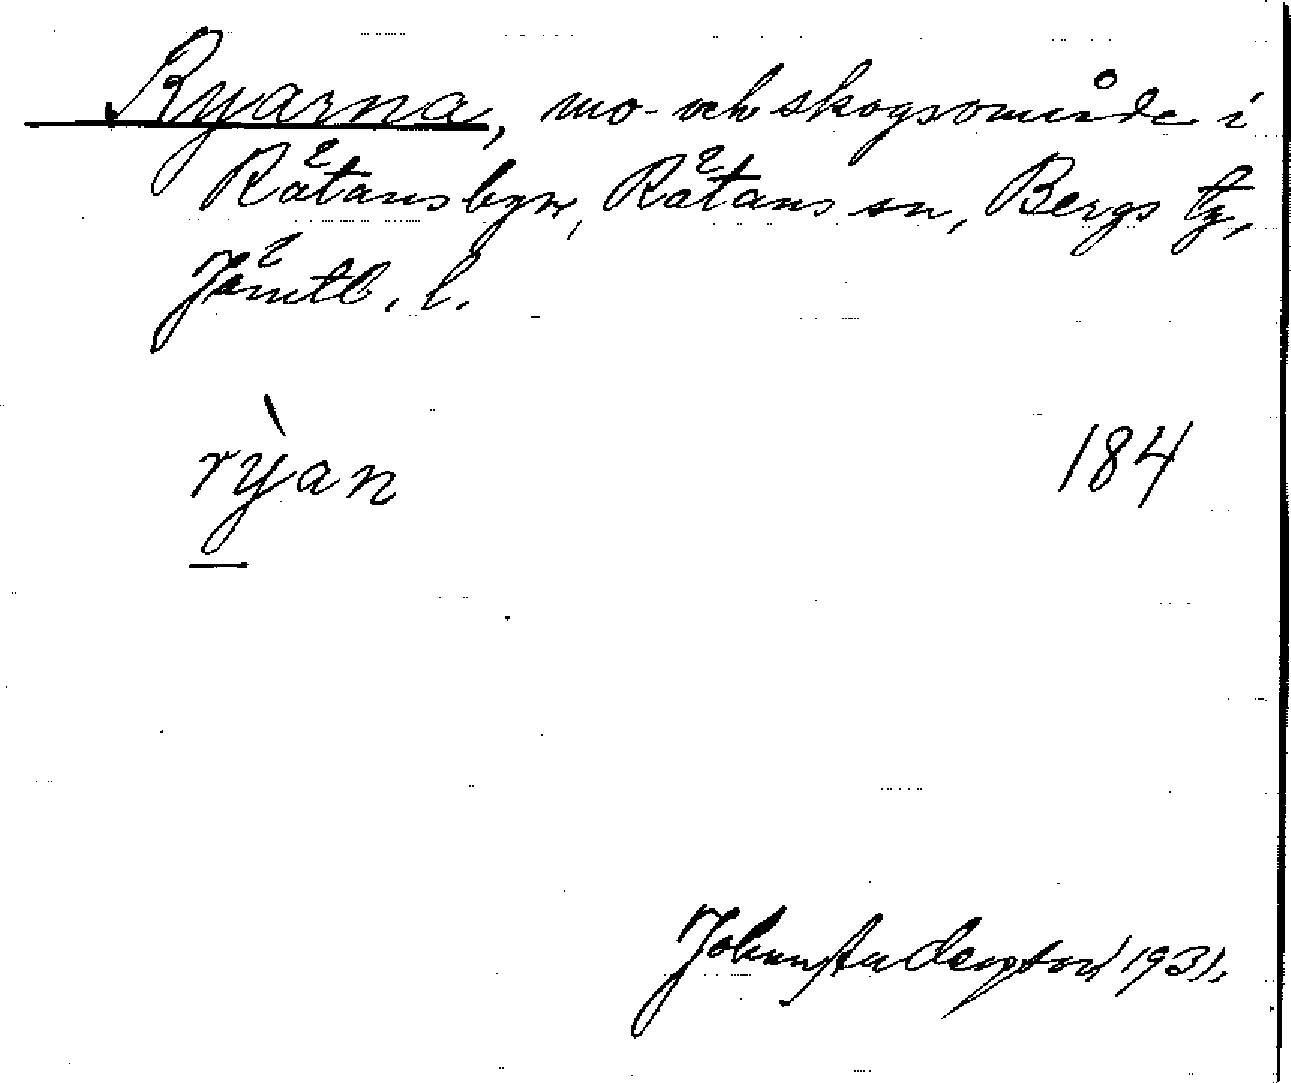 Ryarna, mo- och skogsområde i
Rätansbyn, Rätans sn, Bergs tg,
Jämtl. l.
rỳan 184
Johan Anderson 1931.